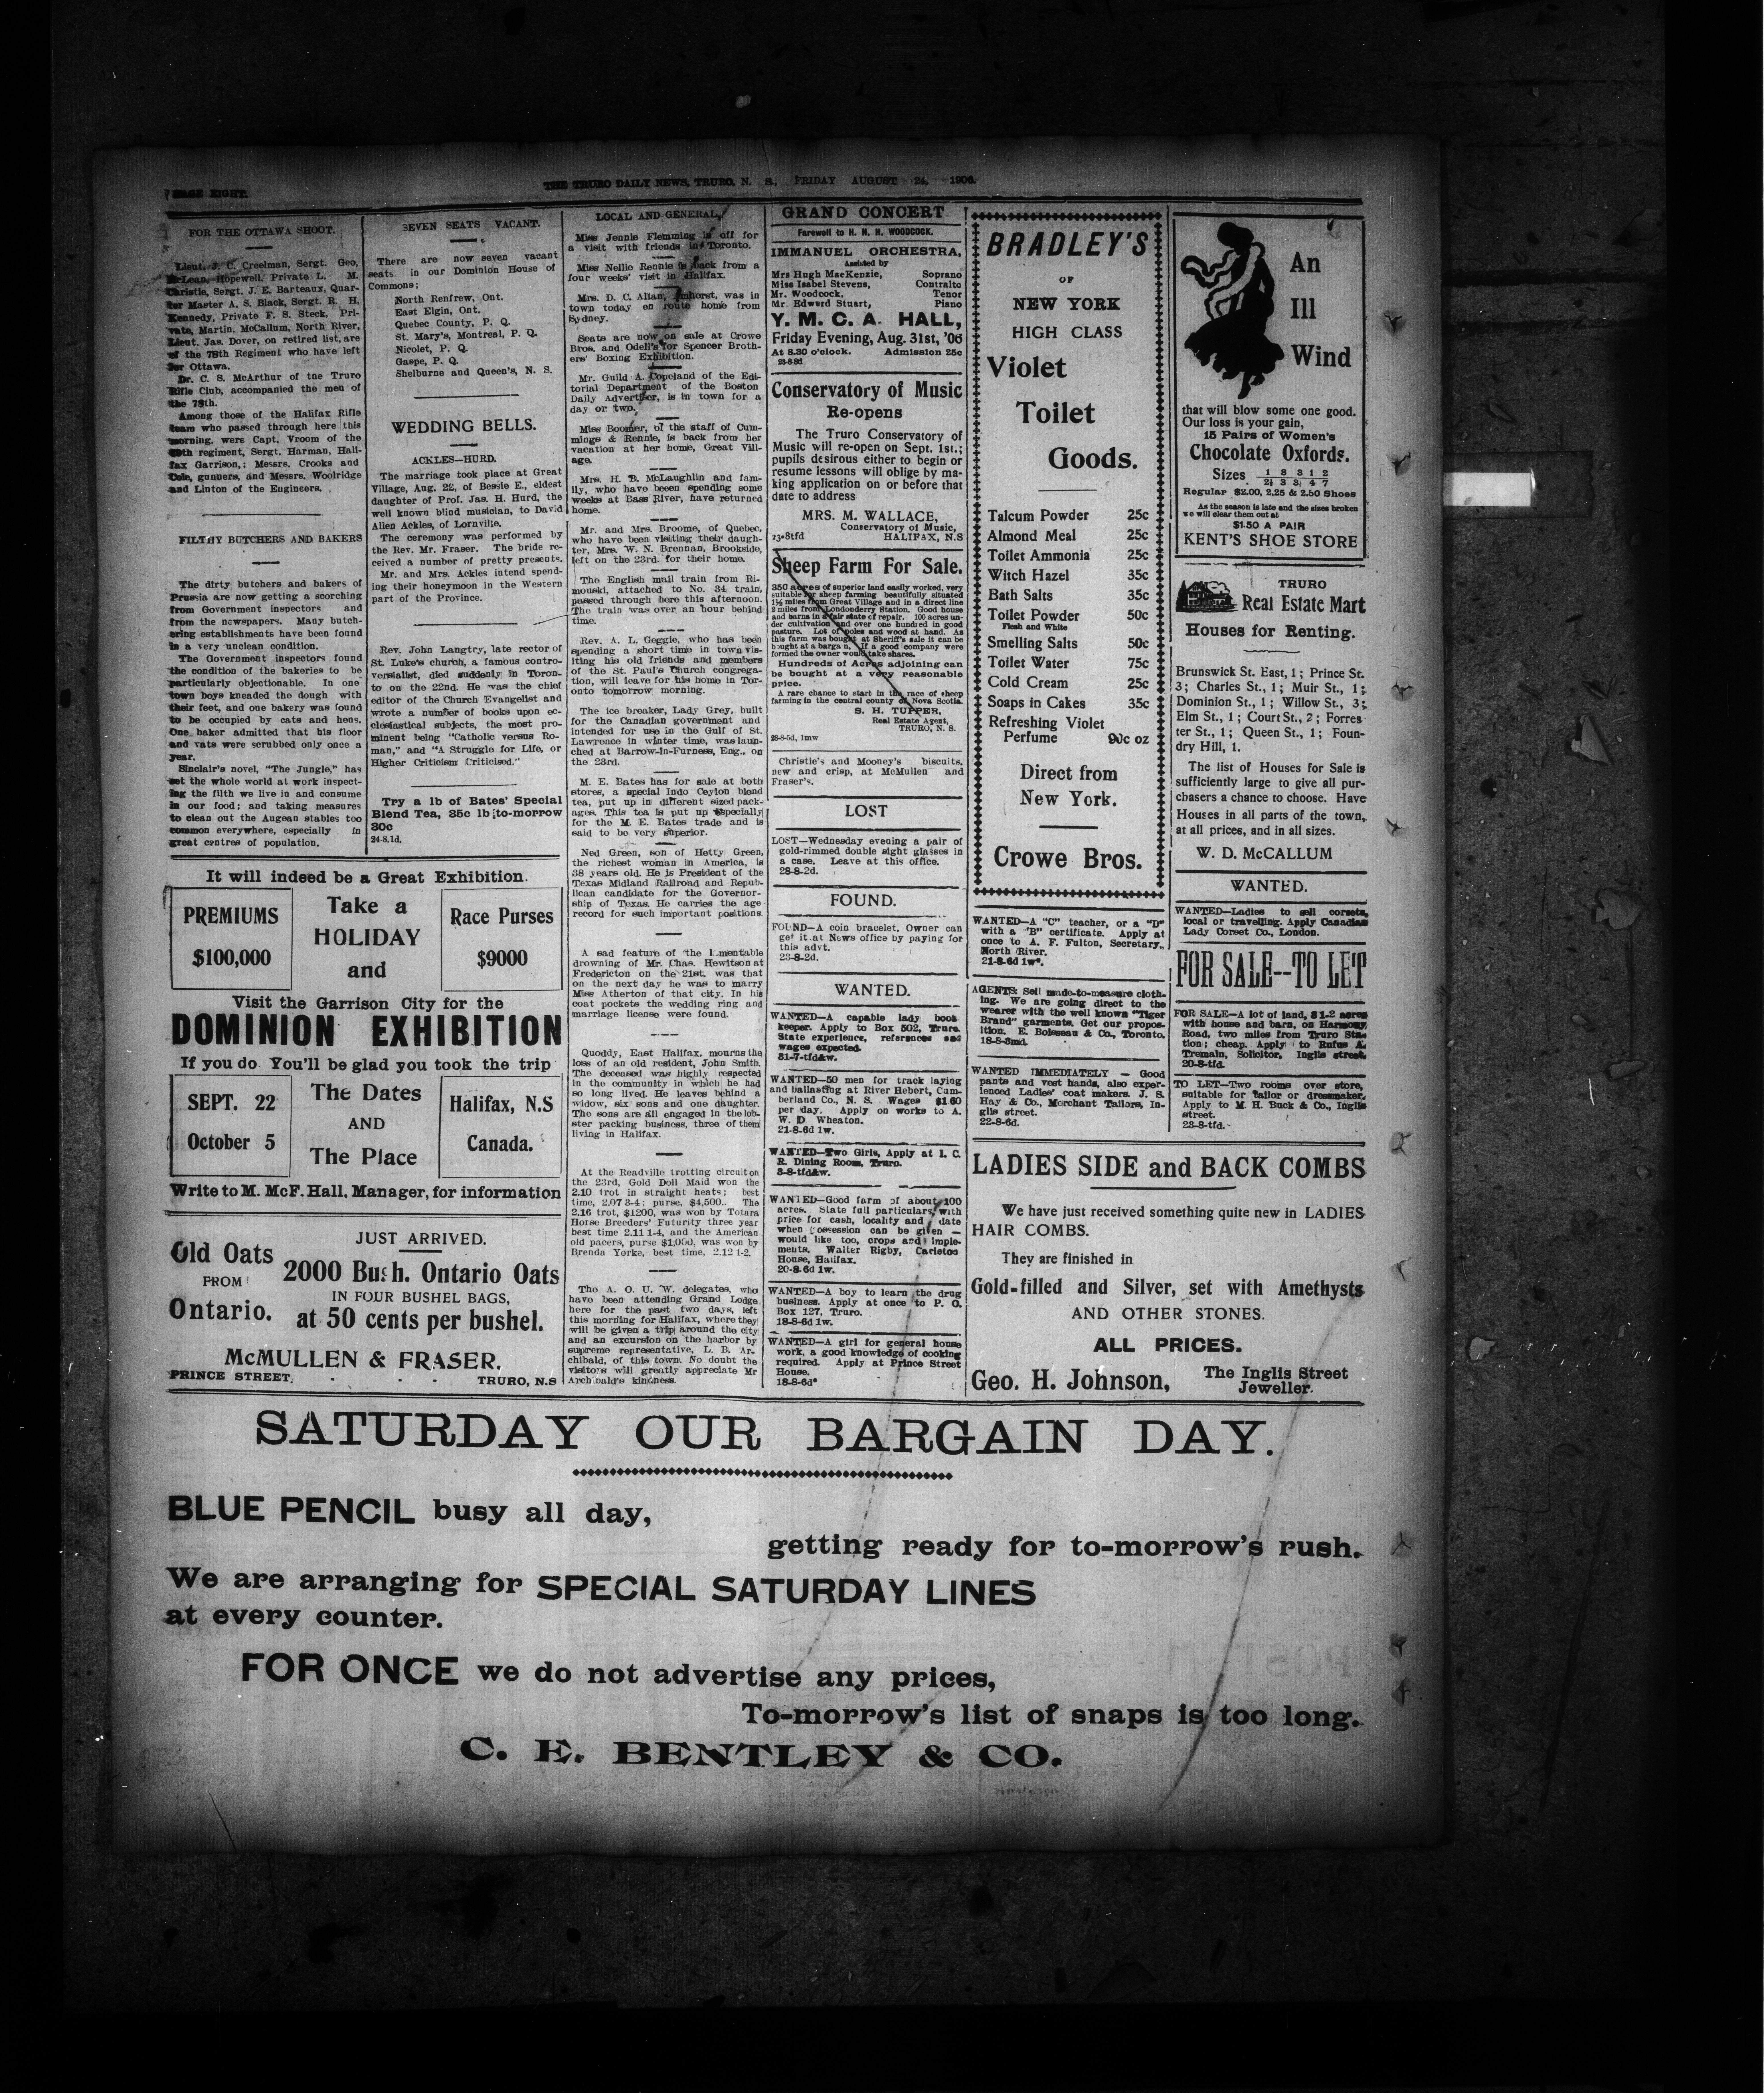 PAGE EIGHT.
THE TRURO DAILY NEWS, TRURO, N. S., FRIDAY AUGUST 24, 1906.
FOR THE OTTAWA SHOOT.
Lieut. J. C. Creelman, Sergt. Geo,
McLean, Hopewell, Private L. M.
Christie, Sergt. J. E. Barteaux, Quar-
ter Master A. S. Black, Sergt. R. H.
Kennedy, Private F. S. Steck, Pri-
vate, Martin, McCallum, North River,
Lieut. Jas. Dover, on retired list, are
of the 78th Regiment who have left
for Ottawa.
Dr. C. S. McArthur of tne Truro
Rifle Club, accompanied the men of
the 78th.
Among those of the Halifax Rifle
team who passed through here this
morning, were Capt. Vroom of the
69th regiment, Sergt. Harman, Hali-
fax Garrison,; Messrs. Crooks and
Cole, gunners, and Messrs. Woolridge
and Linton of the Engineers.
FILTHY BUTCHERS AND BAKERS
The dirty butchers and bakers of
Prussia are now getting a scorching
from Government inspectors and
from the newspapers. Many butch-
ering establishments have been found
in a very unclean condition.
The Government inspectors found
the condition of the bakeries to be
particularly objectionable. In one
town boys kneaded the dough with
their feet, and one bakery was found
to be occupied by cats and hens.
One baker admitted that his floor
and vats were scrubbed only once a
year.
Sinclair's novel, "The Jungle," has
set the whole world at work inspect-
ing the filth we live in and consume
in our food; and taking measures
to clean out the Augean stables too
common everywhere, especially in
great centres of population.
SEVEN SEATS VACANT.
There are now seven vacant
seats in our Dominion House of
Commons;
North Renfrew, Ont.
East Elgin, Ont.
Quebec County, P. Q.
St. Mary's, Montreal, P. Q.
Nicolet, P. Q.
Gaspe, P. Q.
Shelburne and Queen's, N. S.
WEDDING BELLS.
ACKLES—HURD.
The marriage took place at Great
Village, Aug. 22, of Bessie E., eldest
daughter of Prof. Jas. H. Hurd, the
well known blind musician, to David
Allen Ackles, of Lornville.
The ceremony was performed by
the Rev. Mr. Fraser. The bride re-
ceived a number of pretty presents.
Mr. and Mrs. Ackles intend spend-
ing their honeymoon in the Western
part of the Province.
Rev. John Langtry, late rector of
St. Luke's church, a famous contro-
versialist, died suddenly in Toron-
to on the 22nd. He was the chief
editor of the Church Evangelist and
wrote a number of books upon ec-
clesiastical subjects, the most pro-
minent being "Catholic versus Ro-
man," and "A Struggle for Life, or
Higher Criticism Criticised."
Try a lb of Bates' Special
Blend Tea, 35c lb to-morrow
30c
24-8.1d.
It will indeed be a Great Exhibition.
PREMIUMS
$100,000
Take a
HOLIDAY
and
Race Purses
$9000
Visit the Garrison City for the
DOMINION EXHIBITION
If you do You'll be glad you took the trip
SEPT. 22
October 5
The Dates
AND
The Place
Halifax, N.S
Canada.
Write to M. McF. Hall, Manager, for information
Old Oats
FROM
Ontario.
JUST ARRIVED.
2000 Bush. Ontario Oats
IN FOUR BUSHEL BAGS,
at 50 cents per bushel.
McMULLEN & FRASER,
PRINCE STREET, - - - TRURO, N.S
LOCAL AND GENERAL,
Miss Jennie Flemming is off for
a visit with friends in Toronto.
Miss Nellie Rennie is back from a
four weeks' visit in Halifax.
Mrs. D. C. Allan, Amherst, was in
town today en route home from
Sydney.
Seats are now on sale at Crowe
Bros. and Odell's for Spencer Broth-
ers' Boxing Exhibition.
Mr. Guild A. Copeland of the Edi-
torial Department of the Boston
Daily Advertiser, is in town for a
day or two.
Miss Boomer, of the staff of Cum-
mings & Rennie, is back from her
vacation at her home, Great Vill-
age.
Mrs. H. B. McLaughlin and fam-
ily, who have beeen spending some
weeks at Bass River, have returned
home.
Mr. and Mrs. Broome, of Quebec,
who have been visiting their daugh-
ter, Mrs. W. N. Brennan, Brookside,
left on the 23rd. for their home.
The English mail train from Ri-
mouski, attached to No. 34 train,
passed through here this afternoon.
The train was over an hour behind
time.
Rev. A. L. Geggie, who has been
spending a short time in town vis-
iting his old friends and members
of the St. Paul's Church congrega-
tion, will leave for his home in Tor-
onto tomorrow morning.
The ice breaker, Lady Grey, built
for the Canadian government and
intended for use in the Gulf of St.
Lawrence in winter time, was laun-
ched at Barrow-in-Furness, Eng., on
the 23rd.
M. E. Bates has for sale at both
stores, a special Indo Ceylon blend
tea, put up in different sized pack-
ages. This tea is put up especially
for the M. E. Bates trade and is
said to be very superior.
Ned Green, son of Hetty Green,
the richest woman in America, is
38 years old. He is President of the
Texas Midland Railroad and Repub-
lican candidate for the Governor-
ship of Texas. He carries the age
record for such important positions.
A sad feature of the lamentable
drowning of Mr. Chas. Hewitson at
Fredericton on the 21st. was that
on the next day he was to marry
Miss Atherton of that city. In his
coat pockets the wedding ring and
marriage license were found.
Quoddy, East Halifax, mourns the
loss of an old resident, John Smith.
The deceased was highly respected
in the community in which he had
so long lived. He leaves behind a
widow, six sons and one daughter.
The sons are all engaged in the lob-
ster packing business, three of them
living in Halifax.
At the Readville trotting circuit on
the 23rd, Gold Doll Maid won the
2.10 trot in straight heats; best
time, 2.07 3-4; purse, $4,500.. The
2.16 trot, $1200, was won by Totara
Horse Breeders' Futurity three year
best time 2.11 1-4, and the American
old pacers, purse $1,000, was won by
Brenda Yorke, best time, 2.12 1-2.
The A. O. U. W. delegates, who
have been attending Grand Lodge
here for the past two days, left
this morning for Halifax, where they
will be given a trip around the city
and an excursion on the harbor by
supreme representative, L. B. Ar-
chibald, of this town. No doubt the
visitors will greatly appreciate Mr
Archibald's kindness.
GRAND CONCERT
Farewell to H. N. H. WOODCOCK.
IMMANUEL ORCHESTRA,
Assisted by
Mrs Hugh MacKenzie, Soprano
Miss Isabel Stevens, Contralto
Mr. Woodcock, Tenor
Mr. Edward Stuart, Piano
Y. M. C. A. HALL,
Friday Evening, Aug. 31st, '06
At 8.30 o'clock. Admission 25c
23-8-8d
Conservatory of Music
Re-opens
The Truro Conservatory of
Music will re-open on Sept. 1st.;
pupils desirous either to begin or
resume lessons will oblige by ma-
king application on or before that
date to address
MRS. M. WALLACE,
Conservatory of Music,
23-8tfd HALIFAX, N.S
Sheep Farm For Sale.
350 acres of superior land easily worked, very
suitable for sheep farming beautifully situated
1½ miles from Great Village and in a direct line
2 miles from Londonderry Station. Good house
and barns in a fair state of repair. 100 acres un-
der cultivation and over one hundred in good
pasture. Lot of poles and wood at hand. As
this farm was bought at Sheriff's sale it can be
bought at a bargain. If a good company were
formed the owner would take shares.
Hundreds of Acres adjoining can
be bought at a very reasonable
price.
A rare chance to start in the race of sheep
farming in the central county of Nova Scotia.
S. H. TUPPER,
Real Estate Agent,
TRURO, N. S.
28-8-5d, 1mw
Christie's and Mooney's biscuits,
new and crisp, at McMullen and
Fraser's.
LOST
LOST—Wednesday evening a pair of
gold-rimmed double sight glasses in
a case. Leave at this office.
28-8-2d.
FOUND.
FOUND—A coin bracelet. Owner can
get it at News office by paying for
this advt.
23-8-2d.
WANTED.
WANTED—A capable lady book
keeper. Apply to Box 502, Truro.
State experience, references and
wages expected.
31-7-tfd&w.
WANTED—50 men for track laying
and ballasting at River Hebert, Cum-
berland Co., N. S. Wages $1.60
per day. Apply on works to A.
W. D. Wheaton.
21-8-6d 1w.
WANTED—Two Girls, Apply at I. C.
R. Dining Room, Truro.
3-8-tfd&w.
WANTED—Good farm of about 100
acres. State full particulars, with
price for cash, locality and date
when possession can be given —
would like too, crops and imple-
ments. Walter Rigby, Carleton
House, Halifax.
20-8-6d 1w.
WANTED—A boy to learn the drug
business. Apply at once to P. O.
Box 127, Truro.
18-8-6d 1w.
WANTED—A girl for general house
work, a good knowledge of cooking
required. Apply at Prince Street
House.
18-8-6d*
BRADLEY'S
OF
NEW YORK
HIGH CLASS
Violet
Toilet
Goods.
Talcum Powder 25c
Almond Meal 25c
Toilet Ammonia 25c
Witch Hazel 35c
Bath Salts 35c
Toilet Powder 50c
Flesh and White
Smelling Salts 50c
Toilet Water 75c
Cold Cream 25c
Soaps in Cakes 35c
Refreshing Violet
Perfume 90c oz
Direct from
New York.
Crowe Bros.
WANTED—A "C" teacher, or a "D"
with a "B" certificate. Apply at
once to A. F. Fulton, Secretary,
North River.
21-8-6d 1w*.
AGENTS: Sell made-to-measure cloth-
ing. We are going direct to the
wearer with the well known "Tiger
Brand" garments. Get our propos-
ition. E. Boisseau & Co., Toronto.
18-8-3md.
WANTED IMMEDIATELY — Good
pants and vest hands, also exper-
ienced Ladies' coat makers. J. S.
Hay & Co., Merchant Tailors, In-
glis street.
22-8-6d.
An
Ill
Wind
that will blow some one good.
Our loss is your gain,
15 Pairs of Women's
Chocolate Oxfords.
Sizes 1 8 3 1 2
2½ 3 3½ 4 7
Regular $2.00, 2.25 & 2.50 Shoes
As the season is late and the sizes broken
we will clear them out at
$1.50 A PAIR
KENT'S SHOE STORE
TRURO
Real Estate Mart
Houses for Renting.
Brunswick St. East, 1; Prince St.
3; Charles St., 1; Muir St., 1;
Dominion St., 1; Willow St., 3;
Elm St., 1; Court St., 2; Forres
ter St., 1; Queen St., 1; Foun-
dry Hill, 1.
The list of Houses for Sale is
sufficiently large to give all pur-
chasers a chance to choose. Have
Houses in all parts of the town,
at all prices, and in all sizes.
W. D. McCALLUM
WANTED.
WANTED—Ladies to sell corsets,
local or travelling. Apply Canadian
Lady Corset Co., London.
FOR SALE--TO LET
FOR SALE—A lot of land, 31-2 acres
with house and barn, on Harmony
Road, two miles from Truro Sta-
tion; cheap. Apply to Rufus A.
Tremain, Solicitor, Inglis street.
20-8-tfd.
TO LET—Two rooms over store,
suitable for tailor or dressmaker.
Apply to M. H. Buck & Co., Inglis
street.
23-8-tfd.
LADIES SIDE and BACK COMBS
We have just received something quite new in LADIES
HAIR COMBS.
They are finished in
Gold-filled and Silver, set with Amethysts
AND OTHER STONES.
ALL PRICES.
Geo. H. Johnson, The Inglis Street
Jeweller.
SATURDAY OUR BARGAIN DAY.
BLUE PENCIL busy all day,
getting ready for to-morrow's rush.
We are arranging for SPECIAL SATURDAY LINES
at every counter.
FOR ONCE we do not advertise any prices,
To-morrow's list of snaps is too long.
C. E. BENTLEY & CO.